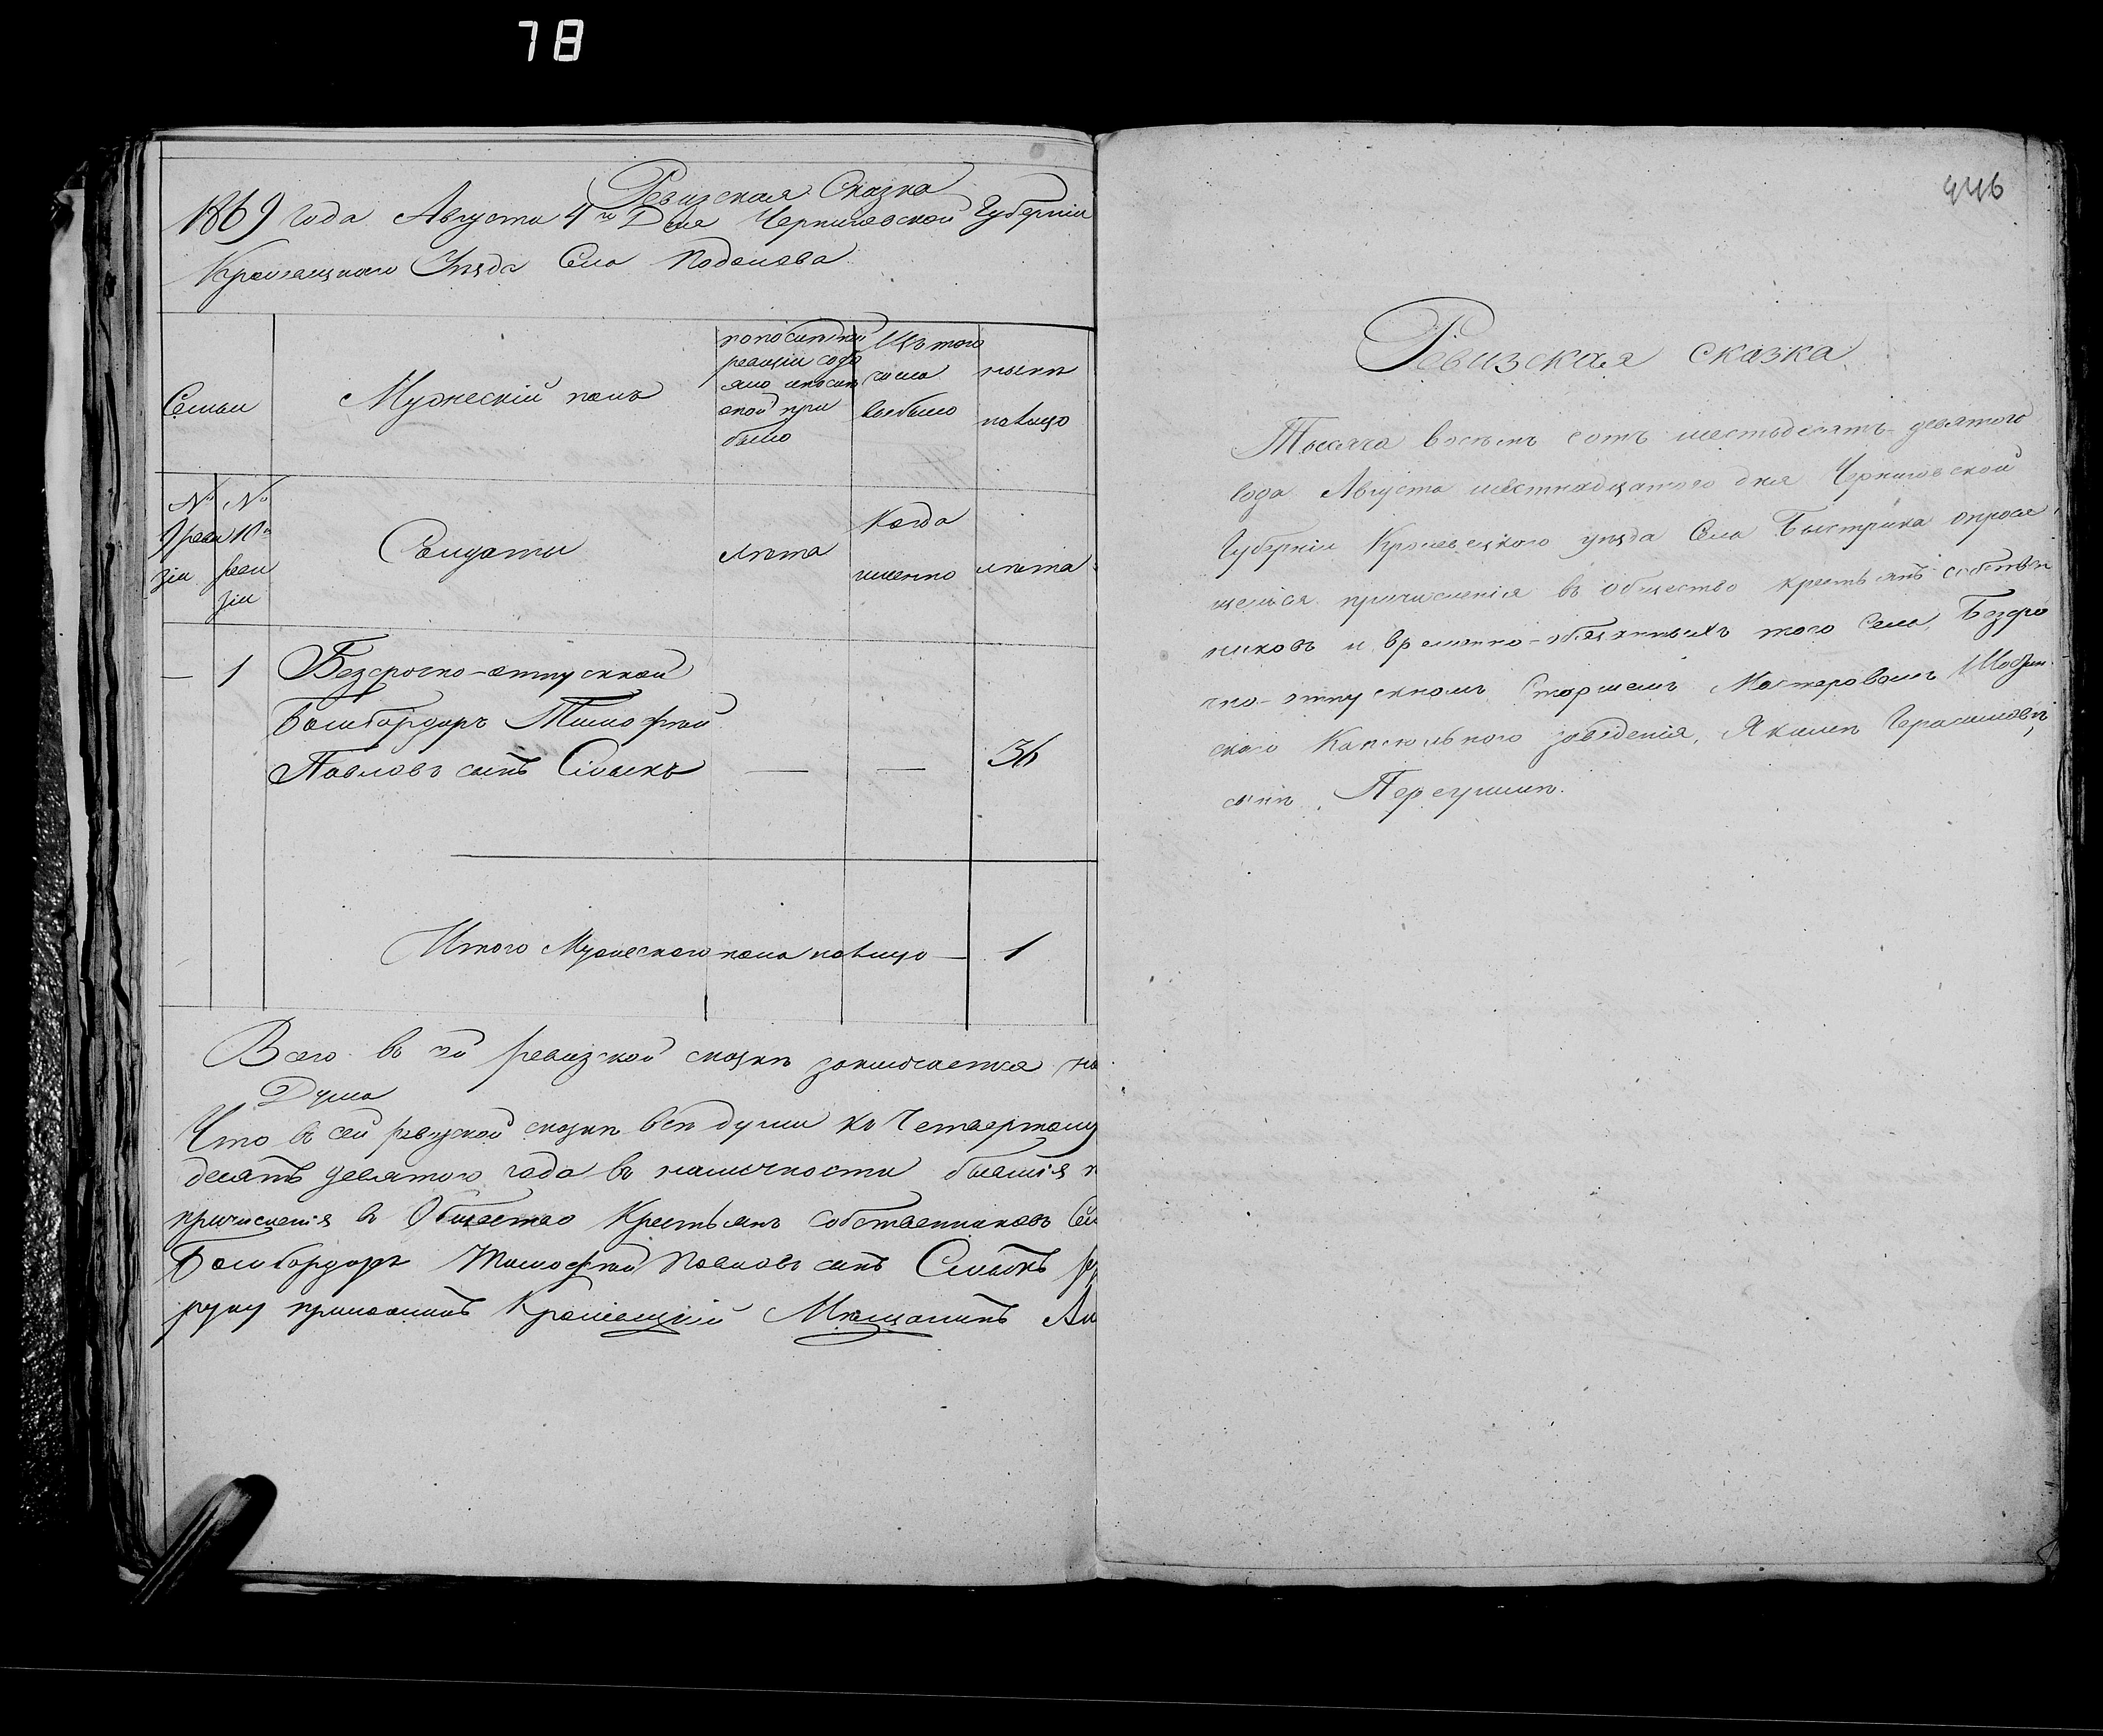 78
Ревизская Сказка
1869 года Августа 4го Дня Черниговской Губерніи
Кролевецкаго Уѣзда Села Подолова
Семьи
Мужескій полъ
Изъ того
числа
выбыло
нынѣ
налицо
№ №
9 реви
зіи
10й
реви
зіи
Солдаты
лѣта
Когда
именно
лѣта
— 1 Безсрочно-отпускной
Бомбардиръ Тимофей
Павловъ сынъ — — 36
Итого Мужескаго пола налицо — 1
Всего въ сей ревизской сказкѣ заключается
Душа
Что въ сей ревизской сказкѣ всѣ души къ Четвертому
десять девятого года въ наличности бывшія
причисленія въ Общество Крестьянъ Собственниковъ
Бомбардиръ Тимофей Павловъ сынъ
руку приложилъ Кролевецкій Мѣщанинъ
446
Ревизская сказка
Тысяча восемь сотъ шестьдесятъ девятого
года Августа шестнадцатого дня Черниговской
Губерніи Кролевецкого уѣзда Села Быстрика о
причисленія въ общество крестьянъ собствен
никовъ и временно-обязанныхъ того Села, Безсро
чно-отпускномъ Старшемъ Мастеровомъ
скаго Капсюльного заведенія, Якимѣ Герасимовѣ
сынѣ